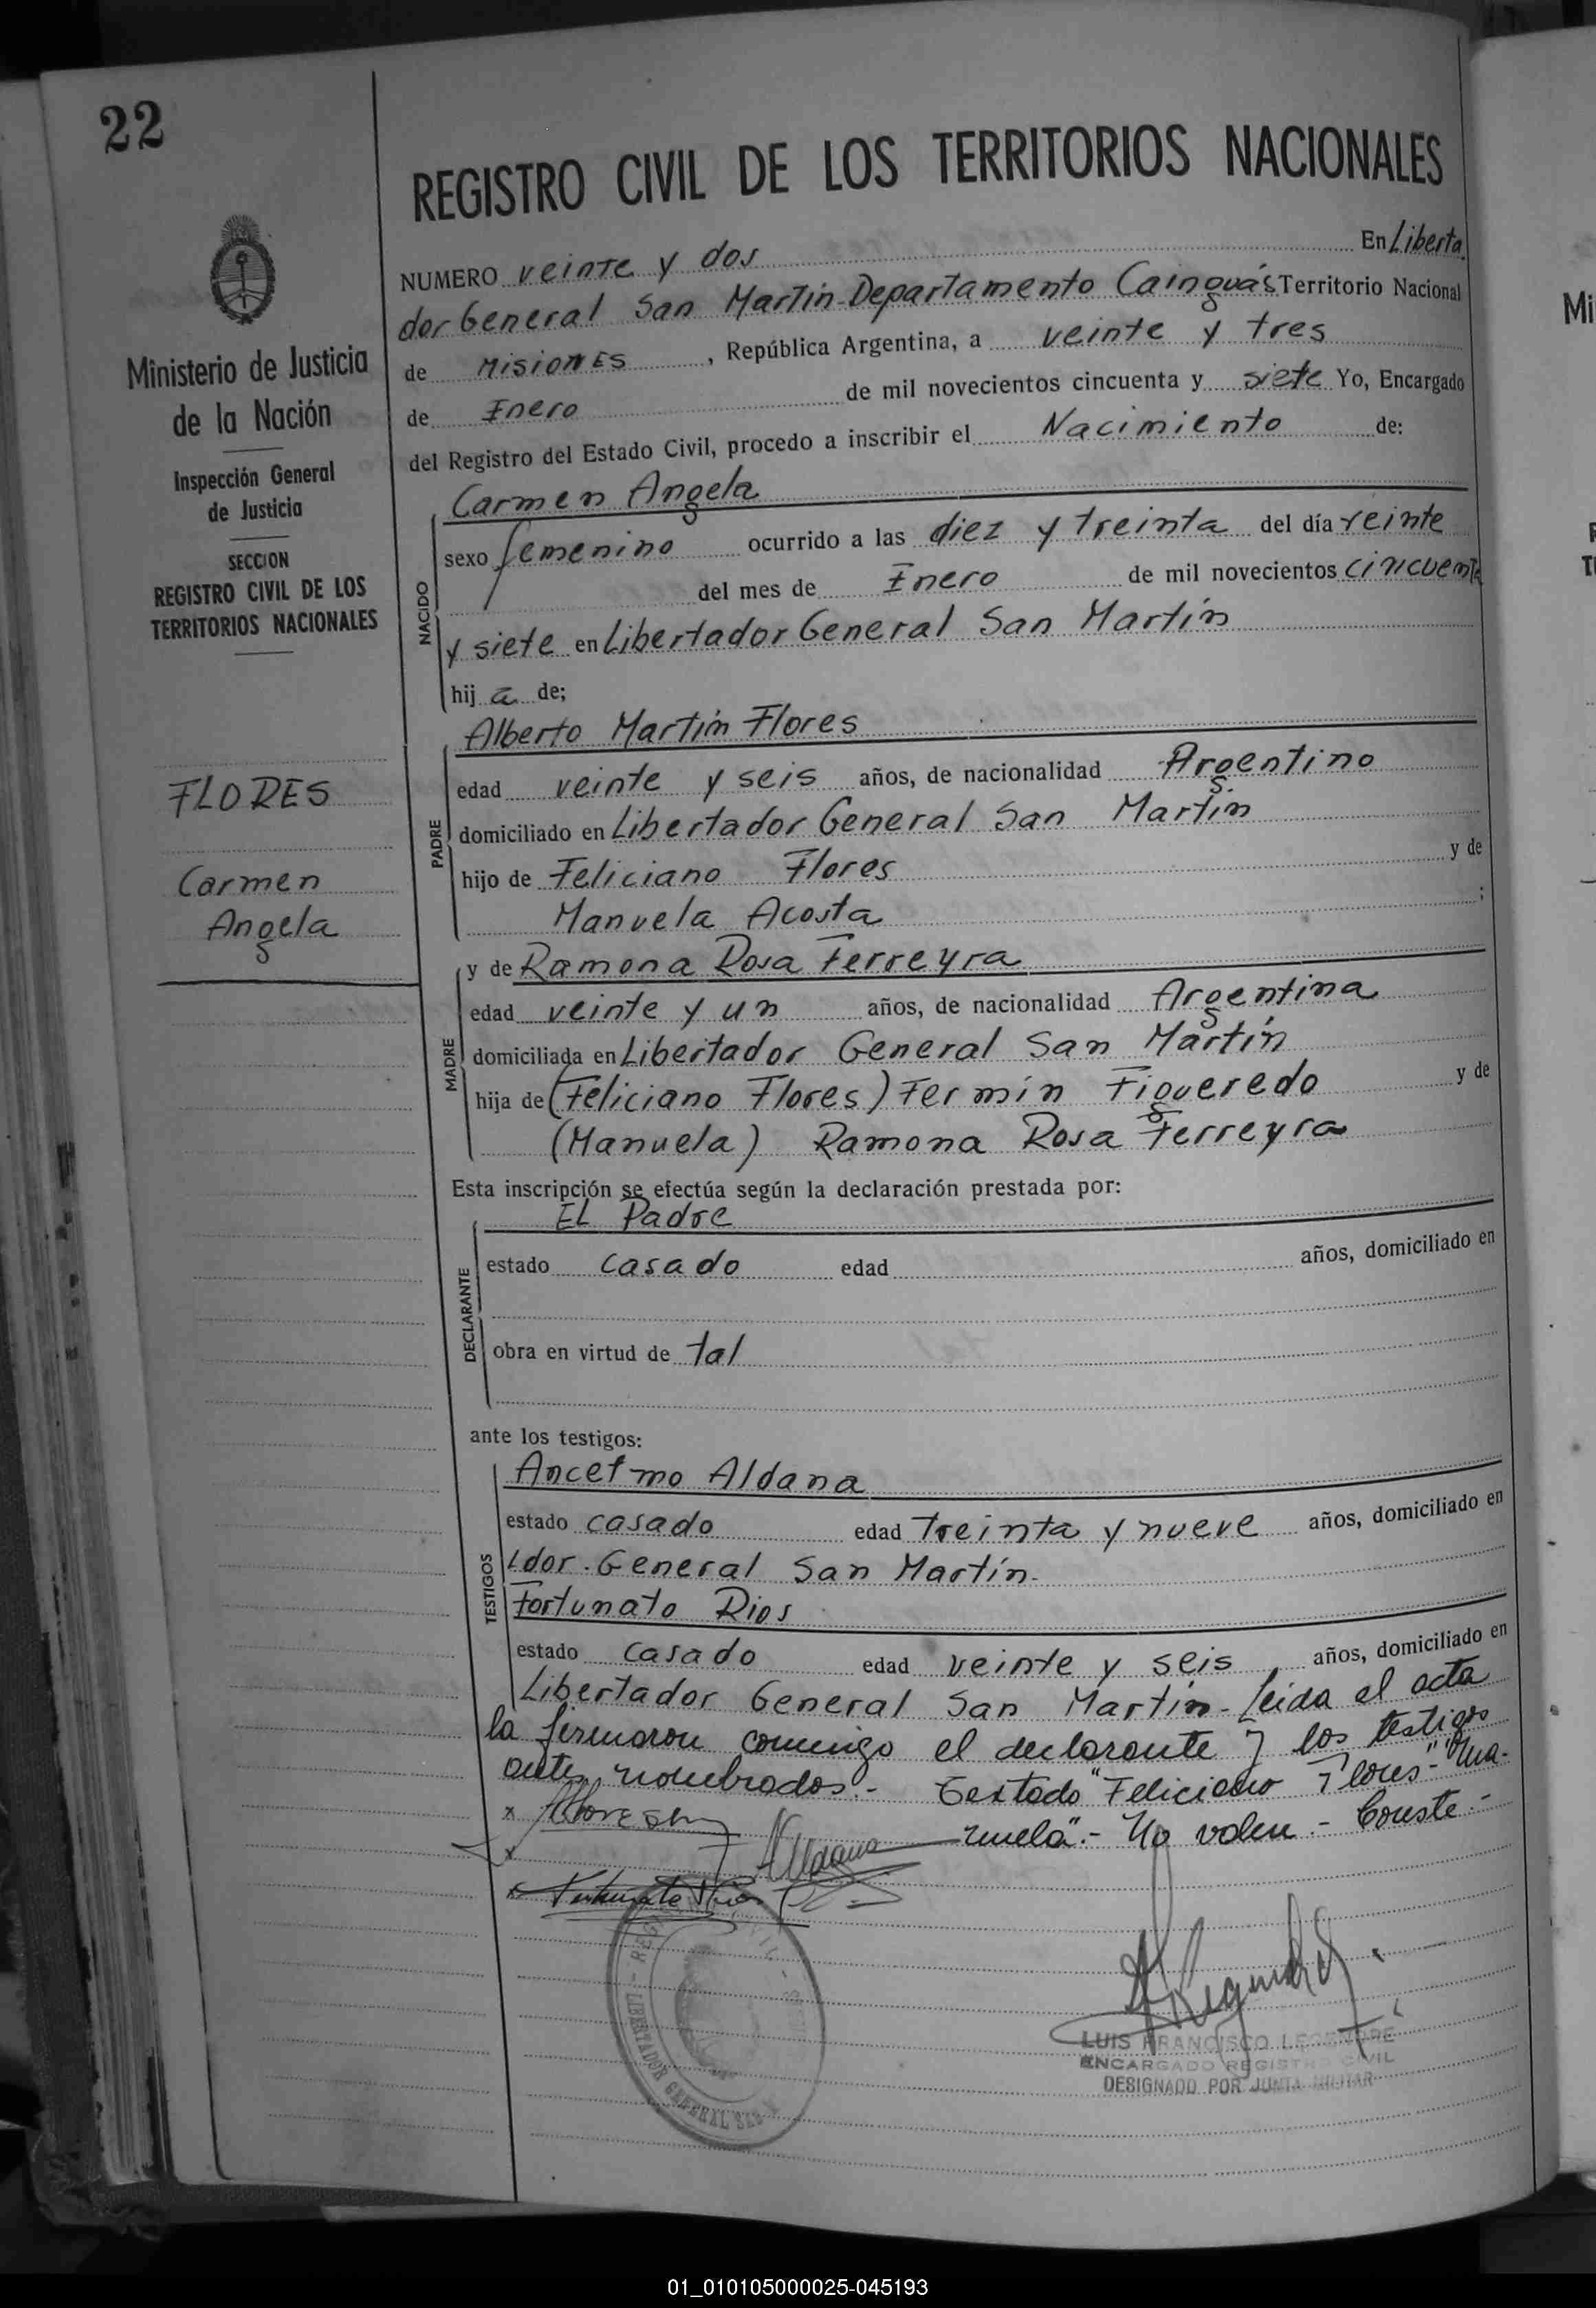 22
Ministerio de Justicia
de la Nación
Inspección General
de Justicia
SECCION
REGISTRO CIVIL DE LOS
TERRITORIOS NACIONALES
FLORES
Carmen
Angela
REGISTRO CIVIL DE LOS TERRITORIOS NACIONALES
NUMERO veinte y dos En Liberta
dor General San Martín-Departamento Cainguás Territorio Nacional
de Misiones, República Argentina, a veinte y tres
de Enero de mil novecientos cincuenta y siete Yo, Encargado
del Registro del Estado Civil, procedo a inscribir el Nacimiento de:
NACIDO
Carmen Angela
sexo femenino ocurrido a las diez y treinta del día veinte
del mes de Enero de mil novecientos cincuenta
y siete en Libertador General San Martín
hij a de;
PADRE
Alberto Martín Flores
edad veinte y seis años, de nacionalidad Argentino
domiciliado en Libertador General San Martín
hijo de Feliciano Flores y de
Manuela Acosta ;
MADRE
y de Ramona Rosa Ferreyra
edad veinte y un años, de nacionalidad Argentina
domiciliada en Libertador General San Martín
hija de (Feliciano Flores) Fermín Figueredo y de
(Manuela) Ramona Rosa Ferreyra
Esta inscripción se efectúa según la declaración prestada por:
DECLARANTE
EL Padre
estado casado edad años, domiciliado en
obra en virtud de tal
ante los testigos:
TESTIGOS
Ancelmo Aldana
estado casado edad treinta y nueve años, domiciliado en
Ldor. General San Martín.
Fortunato Rios
estado casado edad veinte y seis años, domiciliado en
Libertador General San Martín- Leida el acta
la firmaron conmigo el declarante y los testigos
antes nombrados.- Testado "Feliciano Flores"- "Ma-
nuela".- No valen.- Conste.-
x
x Aldana
x Fortunato Rios
LIBERTADOR GENERAL SAN
LUIS FRANCISCO LEGENDRE
ENCARGADO REGISTRO CIVIL
DESIGNADO POR JUNTA MILITAR
01_010105000025-045193